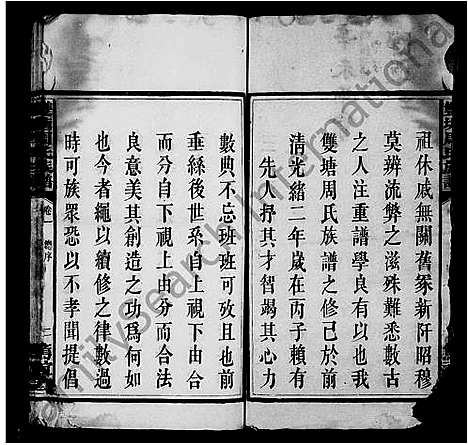 祖休戚無關舊冢新阡昭穆
莫辨流弊之滋殊難悉數古
之人注重譜學良有以也我
雙塘周氏族譜之修已於前
清光緒二年歲在丙子賴有
先人抒其才智竭其心力
數典不忘班班可攷且也前
垂絲後世系自上視下由合
而分自下視上由分而合法
良意美其創造之功爲何如
也今者繩以續修之律數過
時可族眾恐以不孝聞提倡
卷一 總序
FamilySearch International